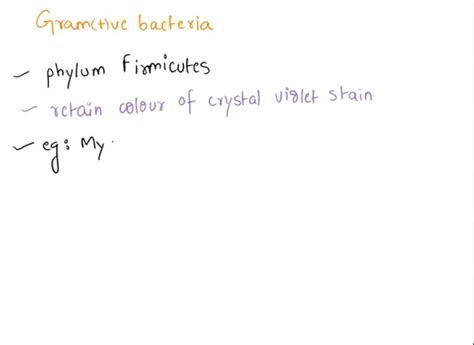 Gram(+)ve bacteria
- phylum Firmicutes
- retain colour of crystal violet stain
- eg: My